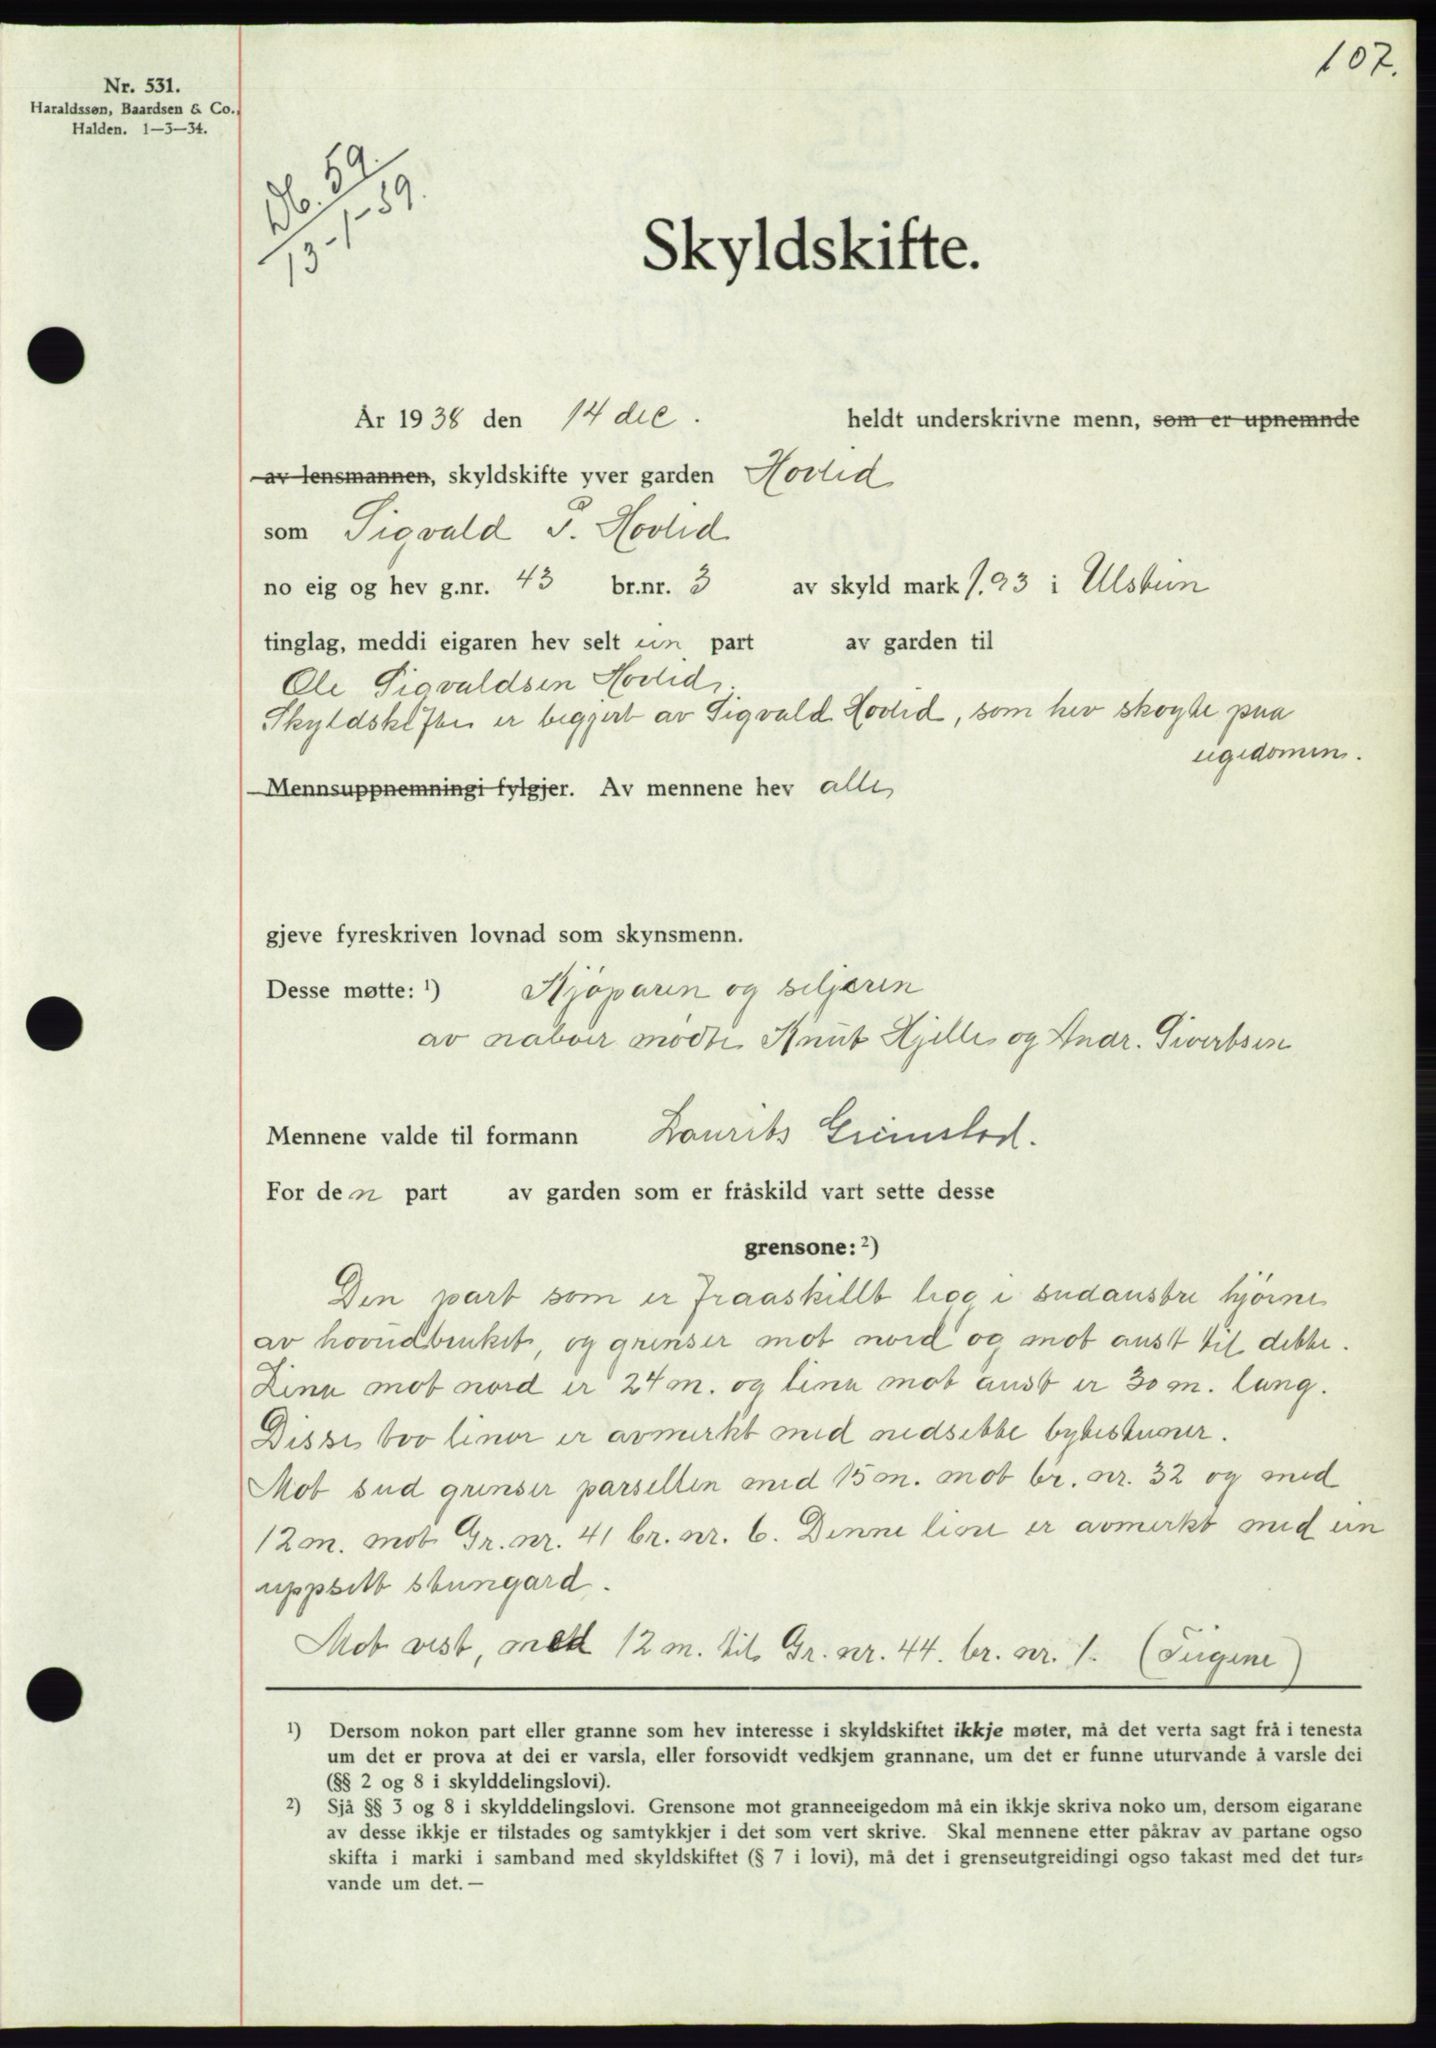 107.
Nr. 531.
Haraldssøn, Baardsen & Co.,
Halden. 1—3—34.
Db. 59.
13-1-39.
Skyldskifte.
År 1938 den 14 dec. heldt underskrivne menn, som er upnemnde
av lensmannen, skyldskifte yver garden Hovlid
som Sigvald P. Hovlid
no eig og hev g.nr. 43 br.nr. 3 av skyld mark 1.93 i Ulstein
tinglag, meddi eigaren hev selt ein part av garden til
Ole Sigvaldsen Hovlid.
Skyldskiftet er begjert av Sigvald Hovlid, som hev skøyte paa
eigedomen.
Mennsuppnemningi fylgjer. Av mennene hev alle
gjeve fyreskriven lovnad som skynsmenn.
Desse møtte: ¹) Kjøparen og seljaren
av naboer mødte Knut Hjelle og Andr. Sivertsen
Mennene valde til formann Laurits Grimstad.
For den part av garden som er fråskild vart sette desse
grensone: ²)
Den part som er fraaskillt ligg i sudaustre hjørne
av hovudbruket, og grenser mot nord og mot aust til dette.
Lina mot nord er 24 m. og lina mot aust er 30 m. lang.
Disse tvo linor er avmerkt med nedsette bytesteiner.
Mot sud grenser parsellen med 15 m. mot br. nr. 32 og med
12 m. mot Gr. nr. 41 br. nr. 6. Denne line er avmerkt med ein
uppsett steingard.
Mot vest, med 12 m. til Gr. nr. 44. br. nr. 1. (Teigene)
¹) Dersom nokon part eller granne som hev interesse i skyldskiftet ikkje møter, må det verta sagt frå i tenesta
um det er prova at dei er varsla, eller forsovidt vedkjem grannane, um det er funne uturvande å varsle dei
(§§ 2 og 8 i skylddelingslovi).
²) Sjå §§ 3 og 8 i skylddelingslovi. Grensone mot granneeigedom må ein ikkje skriva noko um, dersom eigarane
av desse ikkje er tilstades og samtykkjer i det som vert skrive. Skal mennene etter påkrav av partane ogso
skifta i marki i samband med skyldskiftet (§ 7 i lovi), må det i grenseutgreidingi ogso takast med det tur-
vande um det. —